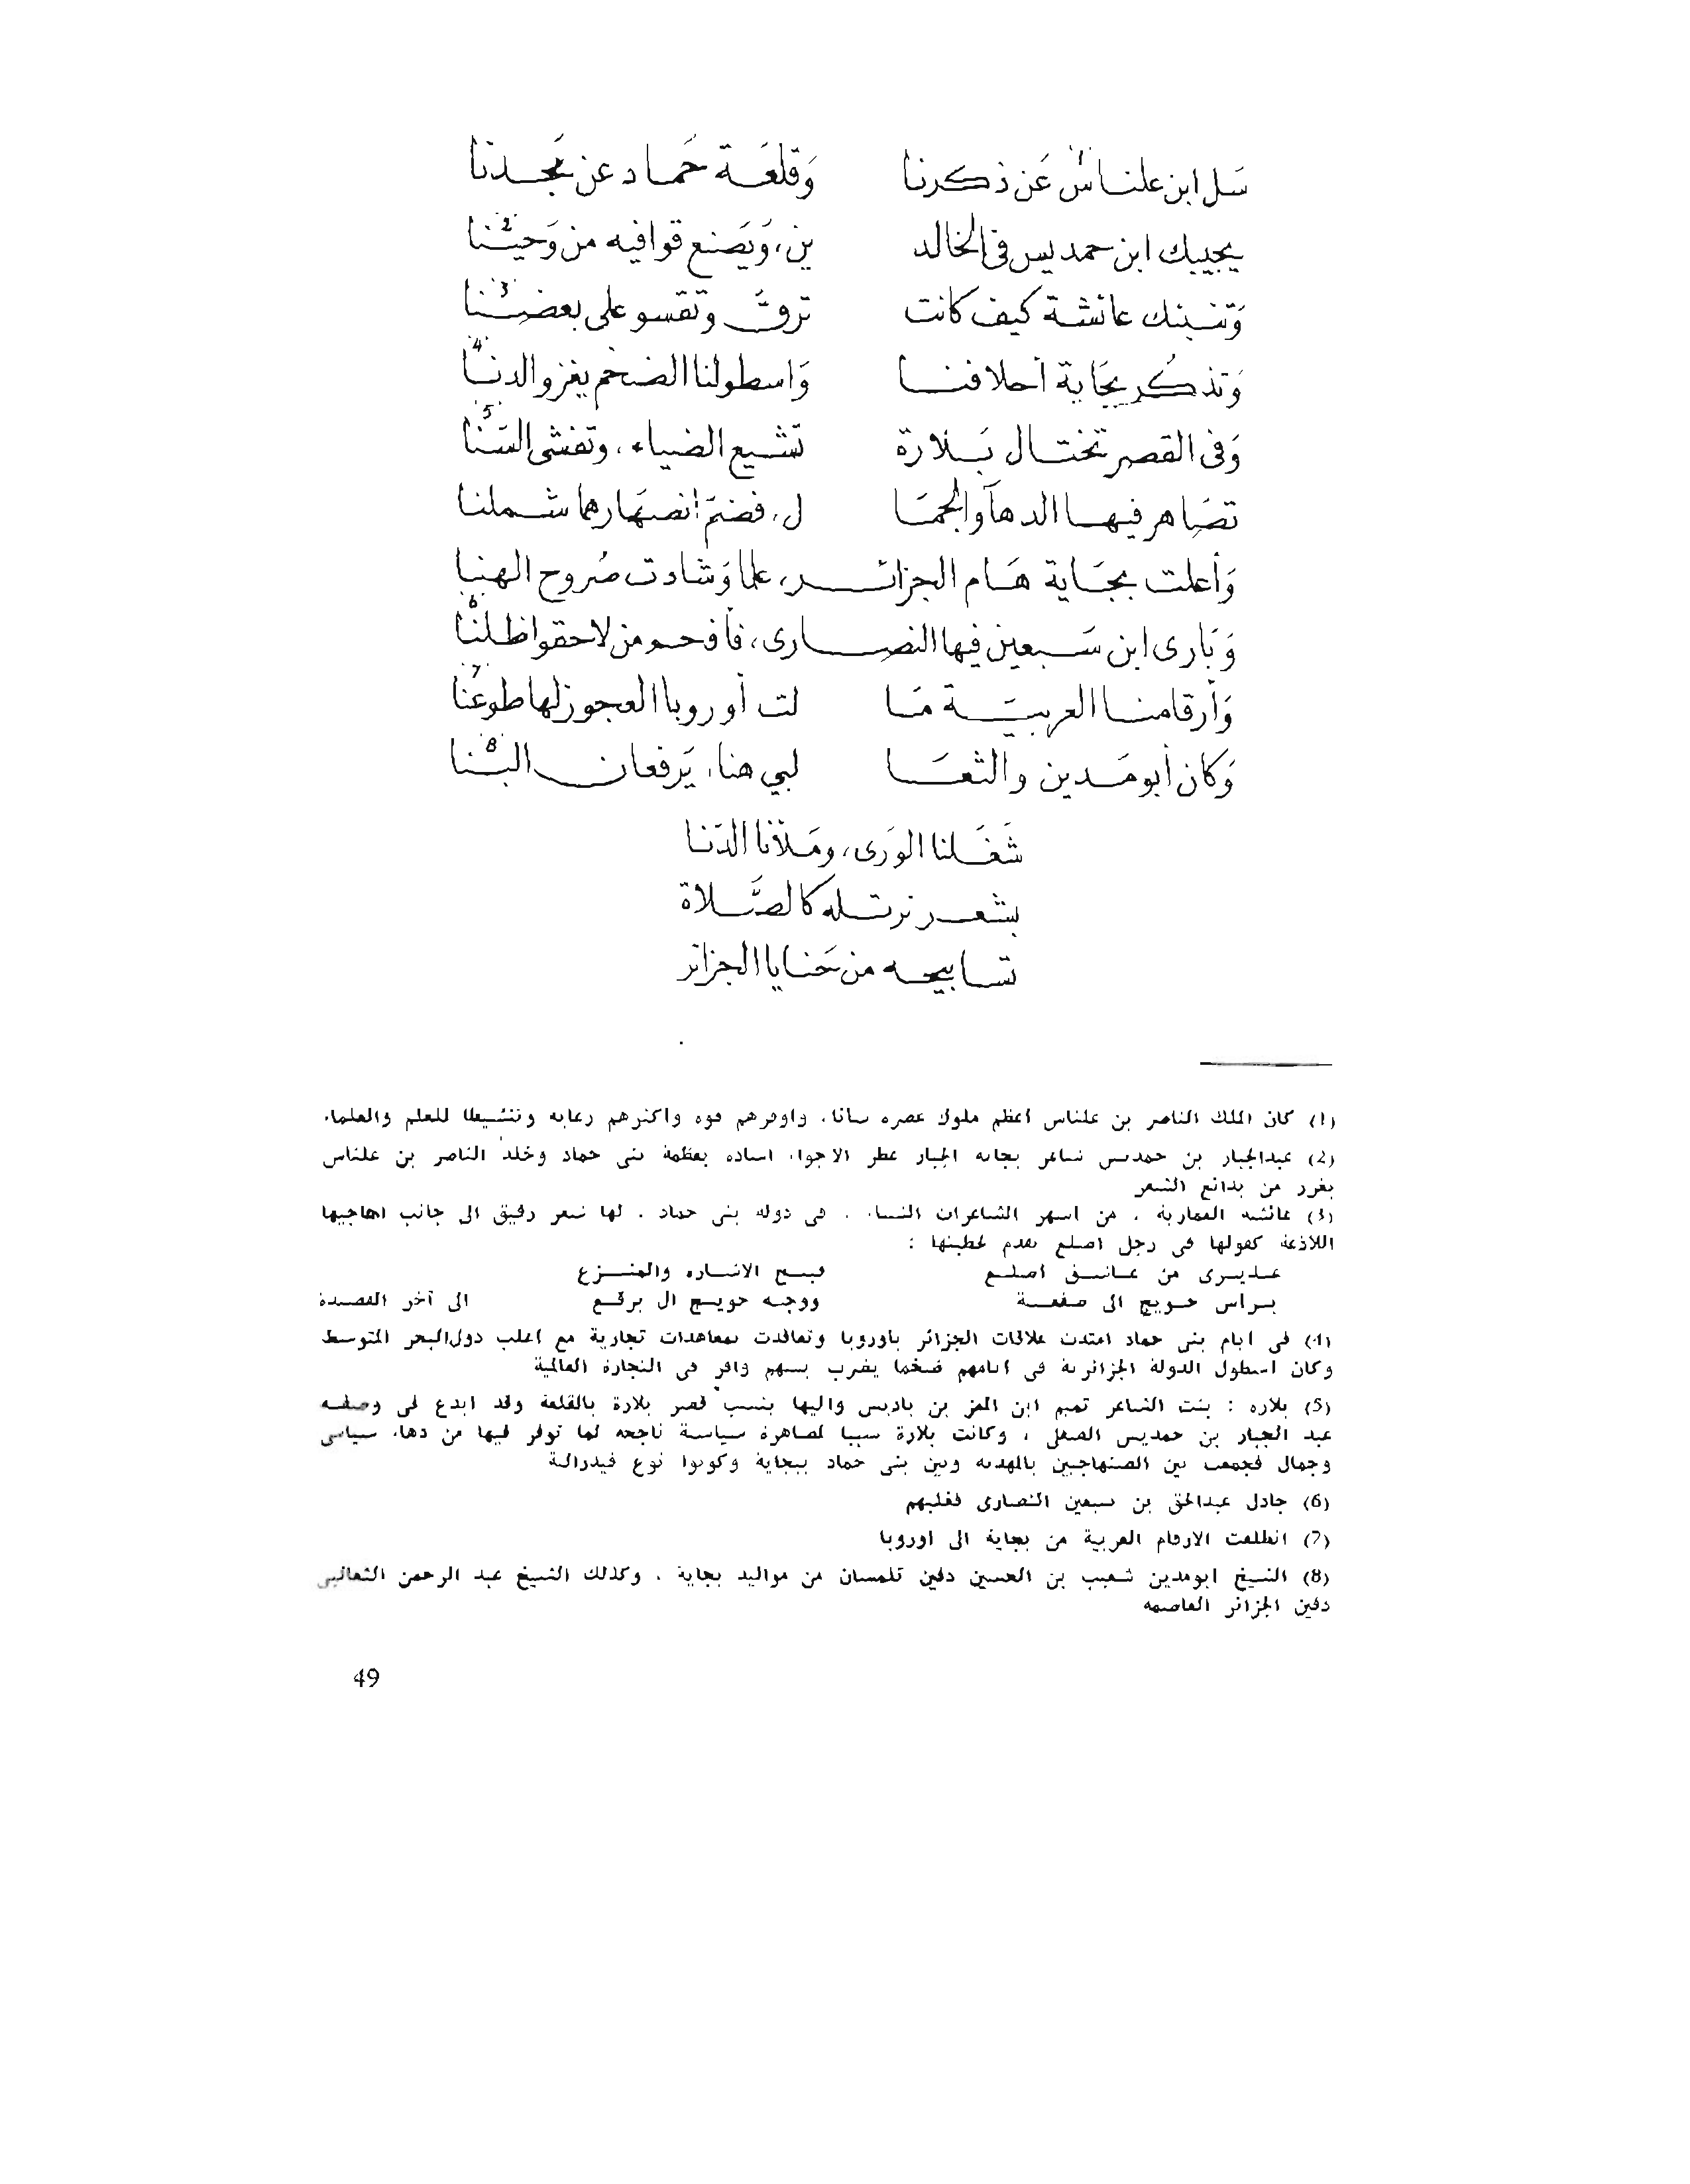 سَل ابن علناس عَن ذكرنا (1) وَقلعَة حَماد عن مَجدنا
يجيبك ابن حمديس في الخالد ين، وَيَصنع قوافيه من وَحينا (2)
وَتنبئك عائشة كيف كانت ترقّ وتقسو على بعضنا (3)
وَتذكُر بجَاية أحلافنا وَاسطولنا الضخم يغزو الدنا (4)
وَفى القصر تختال بَلارة تشيع الضياء، وتفشى السَنا (5)
تصَاهر فيها الدهآ والجمَا ل، فضمّ انصهَارهما شملنا
وَأعلت بجَاية هَام الجزائر، علما وَشادت صُروح الهنا
وَبَارى ابن سَبعين فيها النصارى، فأفحم من لاحقوا ظلنا (6)
وَأرقامنا العربيَة مَا لت أوروبا العجوز لها طوعَنا (7)
وَكان أبو مَدين والثعَا لبي هنا، يَرفعان البنا (8)
شَغَلنا الوَرى، ومَلأنا الدّنا
بشعر نرتله كالصَّلاة
تسابيحه من حَنايا الجزائر
(1) كان الملك الناصر بن علناس أعظم ملوك عصره شأنا، وأوفرهم قوة وأكثرهم رعاية وتنشيطا للعلم والعلماء
(2) عبدالجبار بن حمديس شاعر بجاية الجبار عطر الاجواء اشاده بعظمة بنى حماد وخلد الناصر بن علناس
بغرر من بدائع الشعر
(3) عائشة العمارية ، من اشهر الشاعرات النساء ، فى دولة بنى حماد . لها شعر رقيق الى جانب اهاجيها
اللاذعة كقولها فى رجل اصلع تقدم لخطبتها :
عذيرى من عاشق اصلع قبيح الاشارة والمنزع
براس حويج الى صفعة ووجه حويج ال برقع الى آخر القصيدة
(4) فى ايام بنى حماد امتدت علاقات الجزائر باوروبا وتعاقدت بمعاهدات تجارية مع اغلب دول البحر المتوسط
وكان اسطول الدولة الجزائرية فى ايامهم ضخما يضرب بسهم وافر فى التجارة العالمية
(5) بلارة : بنت الشاعر تميم ابن المعز بن باديس واليها ينسب قصر بلارة بالقلعة وقد ابدع فى وصفه
عبد الجبار بن حمديس الصقلى ، وكانت بلارة سببا لمصاهرة سياسية ناجحة لما توفر فيها من دهاء سياسى
وجمال فجمعت بين الصنهاجيين بالمهدية وبين بنى حماد ببجاية وكونوا نوع فيدرالية
(6) جادل عبدالحق بن سبعين النصارى فغلبهم
(7) انطلقت الارقام العربية من بجاية الى اوروبا
(8) الشيخ ابومدين شعيب بن الحسين دفين تلمسان من مواليد بجاية ، وكذلك الشيخ عبد الرحمن الثعالبى
دفين الجزائر العاصمة
49